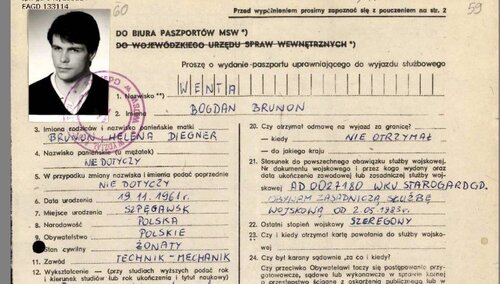 EAGD 133114
60
Przed wypełnieniem prosimy zapoznać się z pouczeniem na str. 2
59
DO BIURA PASZPORTÓW MSW *)
DO WOJEWÓDZKIEGO URZĘDU SPRAW WEWNĘTRZNYCH *)
Proszę o wydanie paszportu uprawniającego do wyjazdu służbowego
1. Nazwisko **) WENTA
2. Imiona BOGDAN BRUNON
3. Imiona rodziców i nazwisko panieńskie matki
BRUNON - HELENA DIEGNER
4. Nazwisko panieńskie (u mężatek)
NIE DOTYCZY
5. W przypadku zmiany nazwiska i imienia podać poprzednie
NIE DOTYCZY
6. Data urodzenia 19.11.1961r.
7. Miejsce urodzenia SZPĘGAWSK
8. Narodowość POLSKA
9. Obywatelstwo POLSKIE
Stan cywilny ŻONATY
11. Zawód TECHNIK-MECHANIK
12. Wykształcenie - (przy studiach wyższych podać rok
i kierunek studiów lub rok ukończenia i tytuł naukowy)
20. Czy otrzymał odmowę na wyjazd za granicę?
— kiedy NIE OTRZYMAŁ
— do jakiego kraju
21. Stosunek do powszechnego obowiązku służby wojskowej.
Nr dokumentu wojskowego i przez kogo wydany oraz
data ukończenia zawodowej lub zasadniczej służby woj-
skowej AD 0027180 WKU STAROGARD GD.
ODBYWAM ZASADNICZĄ SŁUŻBĘ
WOJSKOWĄ OD 2.05.1983r.
22. Ostatni stopień wojskowy SZEREGOWY
23. Czy i kiedy otrzymał kartę powołania do służby wojsko-
wej
24. Czy był karany sądownie, za co i kiedy?
Czy przeciwko Obywatelowi toczy się postępowanie przy-
gotowawcze, sądowe lub wykonawcze w sprawie karnej